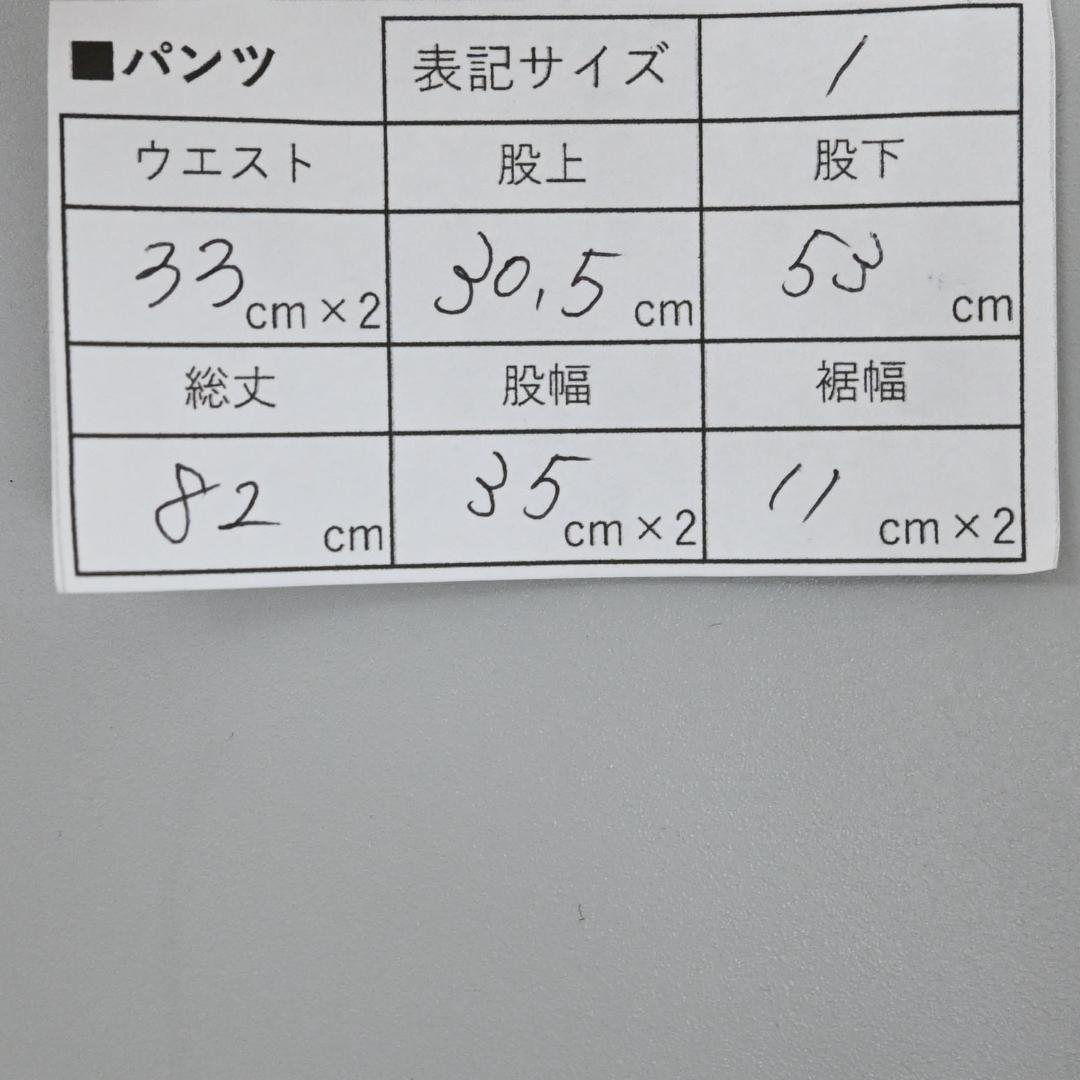 ■パンツ 表記サイズ 1
ウエスト 股上 股下
33cm×2 30.5cm 53cm
総丈 股幅 裾幅
82cm 35cm×2 11cm×2